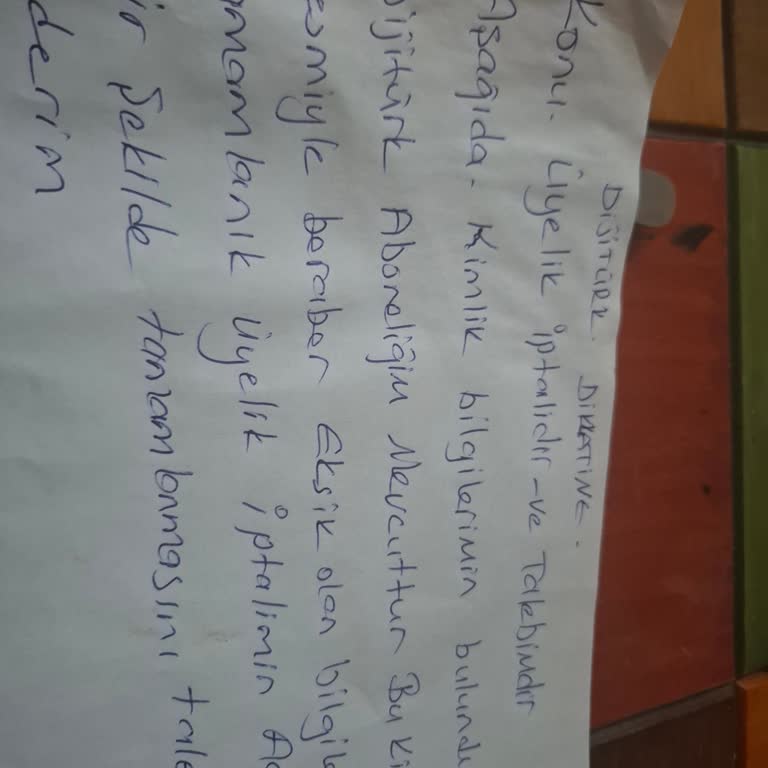 DİJİTÜRK. DİKKATİNE.
Konu. Üyelik iptalidir-ve Talebimdir
Aşağıda. Kimlik bilgilerimin bulundu
Dijitürk Aboneliğim Mevcuttur Bu Ki
esmiyle beraber Eksik olan bilgile
amamlanık üyelik iptalimin Ac
ir Şekilde tamamlanmasını tale
derim